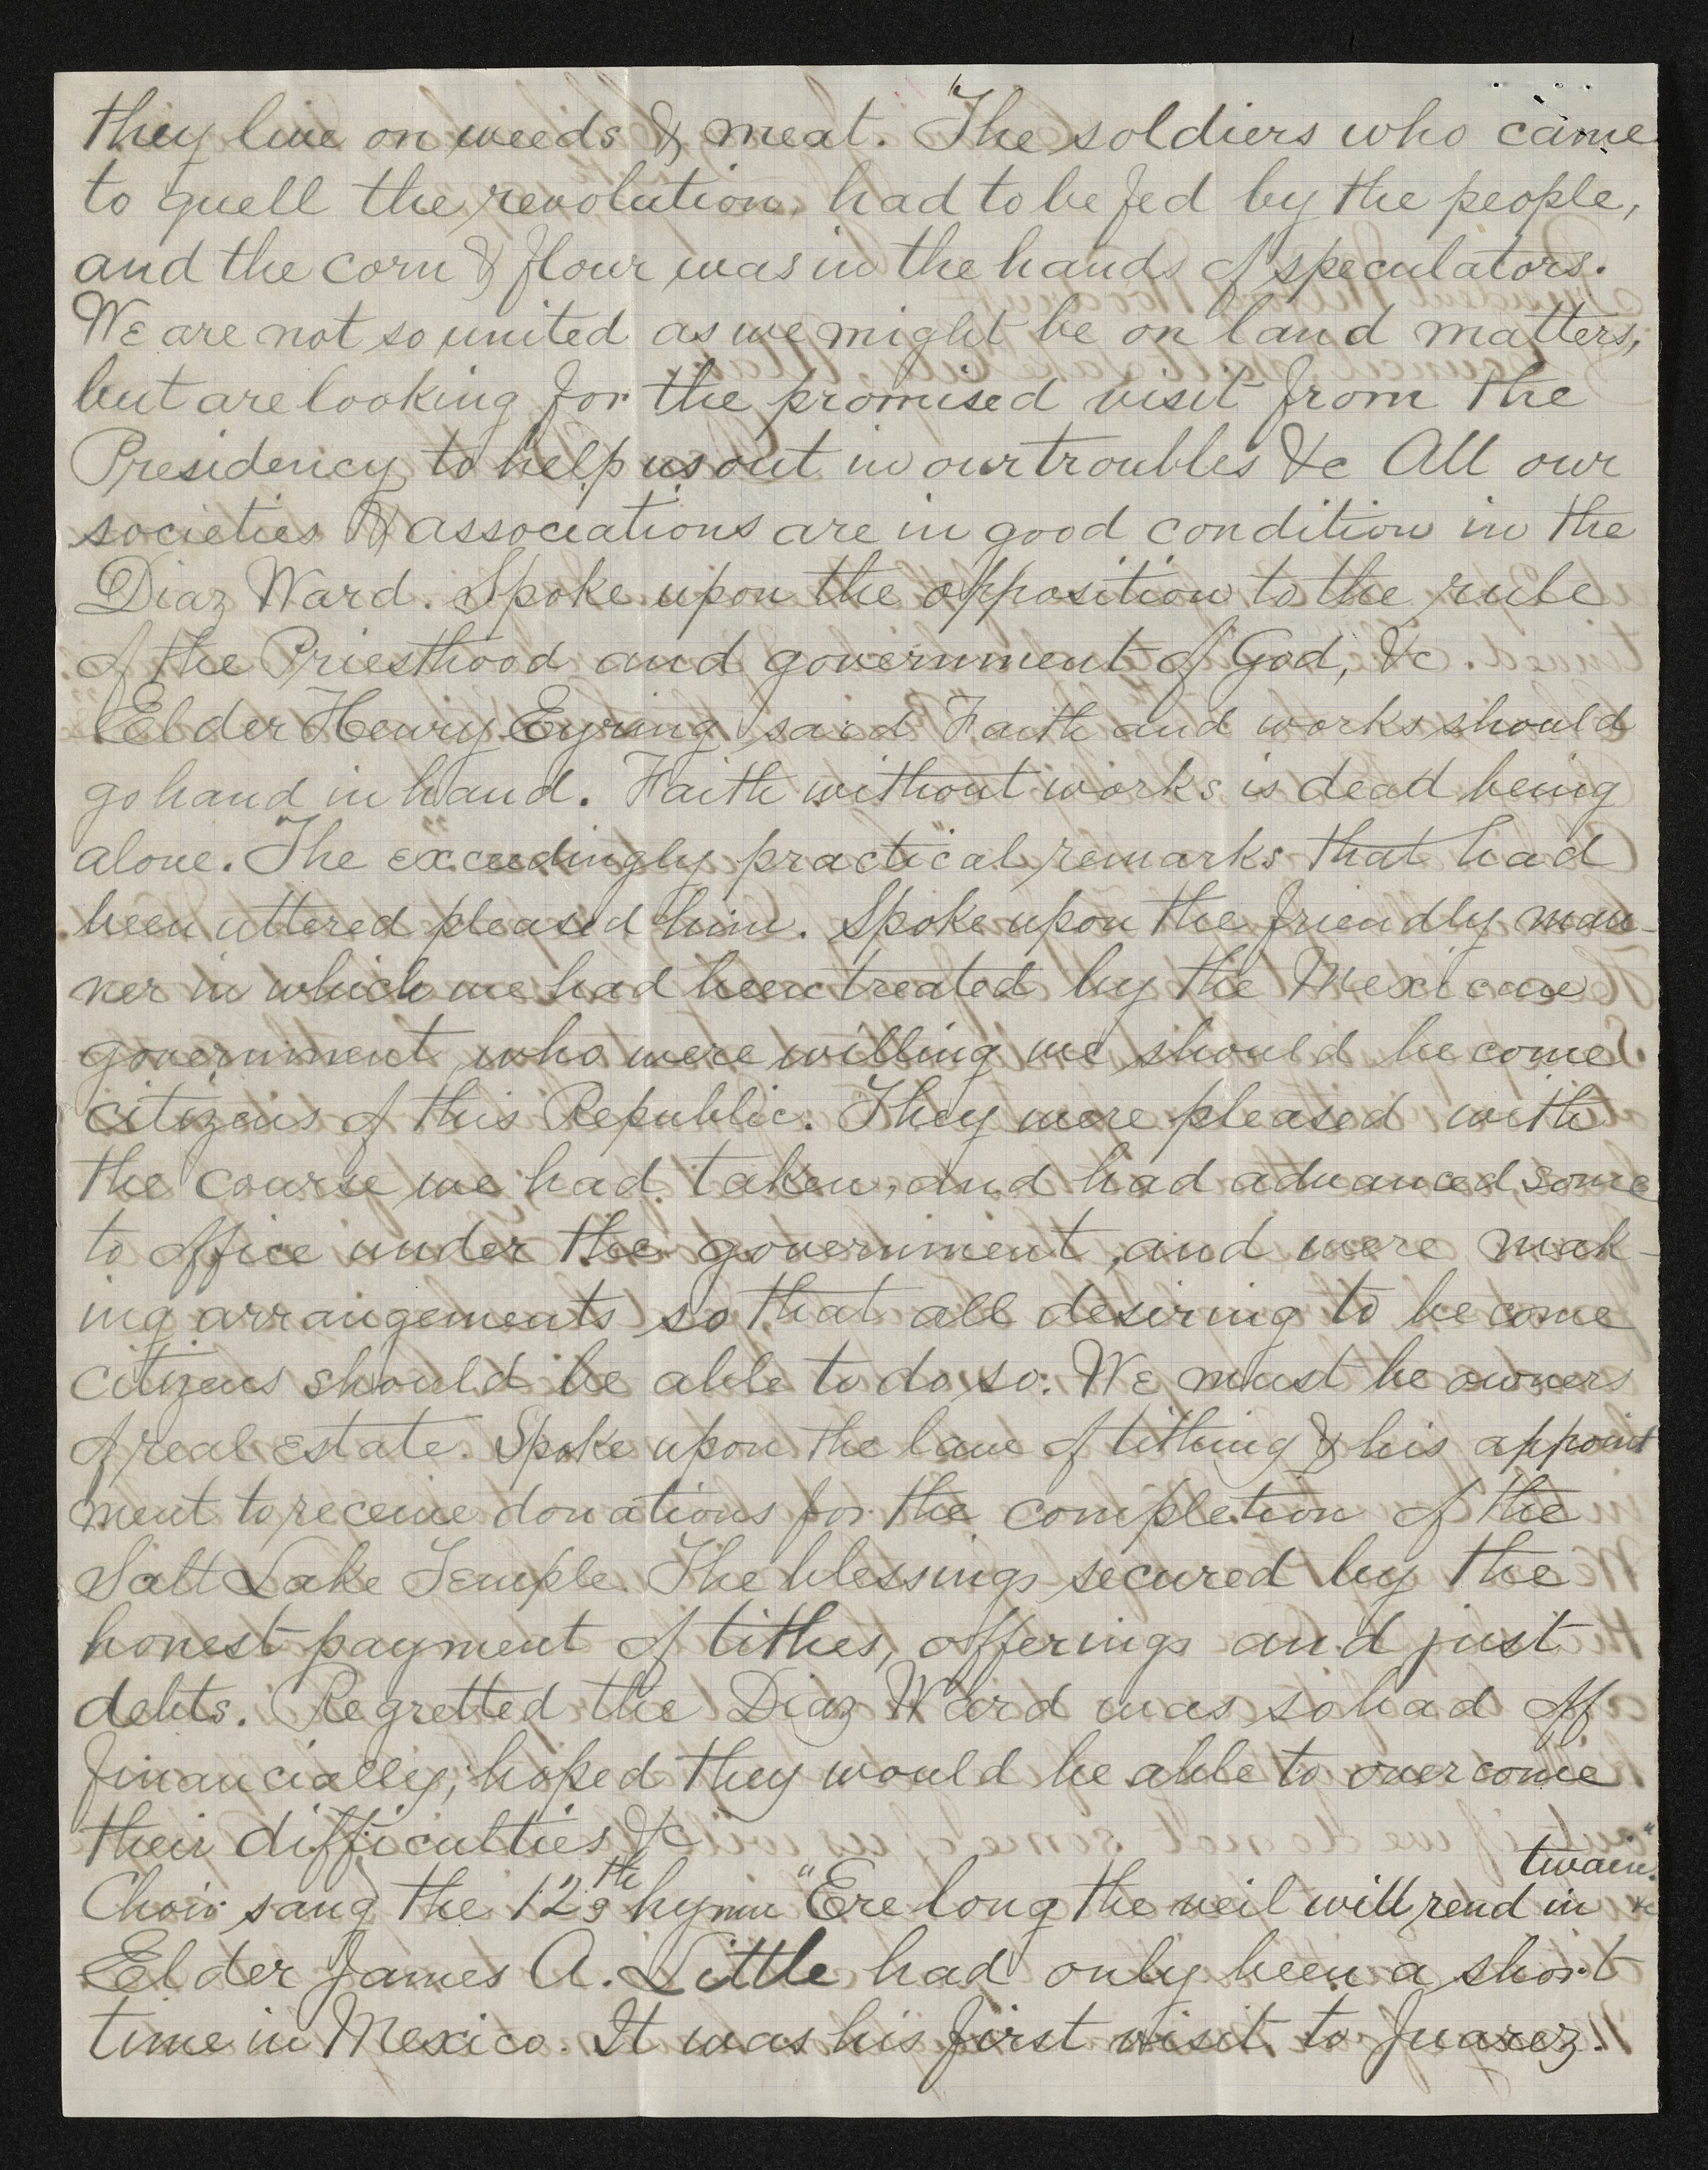 they live on weeds & meat. The soldiers who came
to quell the revolution, had to be fed by the people,
and the corn & flour was in the hands of speculators.
We are not so united as we might be on land matters,
but are looking for the promised visit from the
Presidency to help us out in our troubles &c All our
societies & associations are in good condition in the
Diaz Ward. Spoke upon the opposition to the rule
of the Priesthood and government of God, &c
Elder Henry Eyring said Faith and works should
go hand in hand. Faith without works is dead being
alone. The exceedingly practical remarks that had
been uttered pleased him. Spoke upon the friendly man-
ner in which we had been treated by the Mexican
government, who were willing we should become
citizens of this Republic. They were pleased with
the course we had taken, and had advanced some
to office under the government, and were mak-
ing arrangements so that all desiring to become
citizens should be able to do so. We must be owners
of real estate. Spoke upon the law of tithing & his appoint
ment to receive donations for the completion of the
Salt Lake Temple. The blessings secured by the
honest payment of tithes, offerings and just
debts. Regretted the Diaz Ward was so bad off
financially; hoped they would be able to overcome
their difficulties &c
twain."
Choir sang the 129th hymn "Ere long the veil will rend in &c
Elder James A. Little had only been a short
time in Mexico. It was his first visit to Juarez.